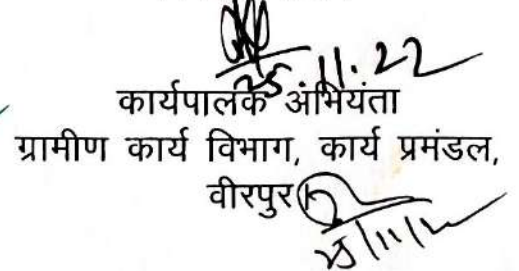 25.11.22
कार्यपालक अभियंता
ग्रामीण कार्य विभाग, कार्य प्रमंडल,
वीरपुर
25/11/2